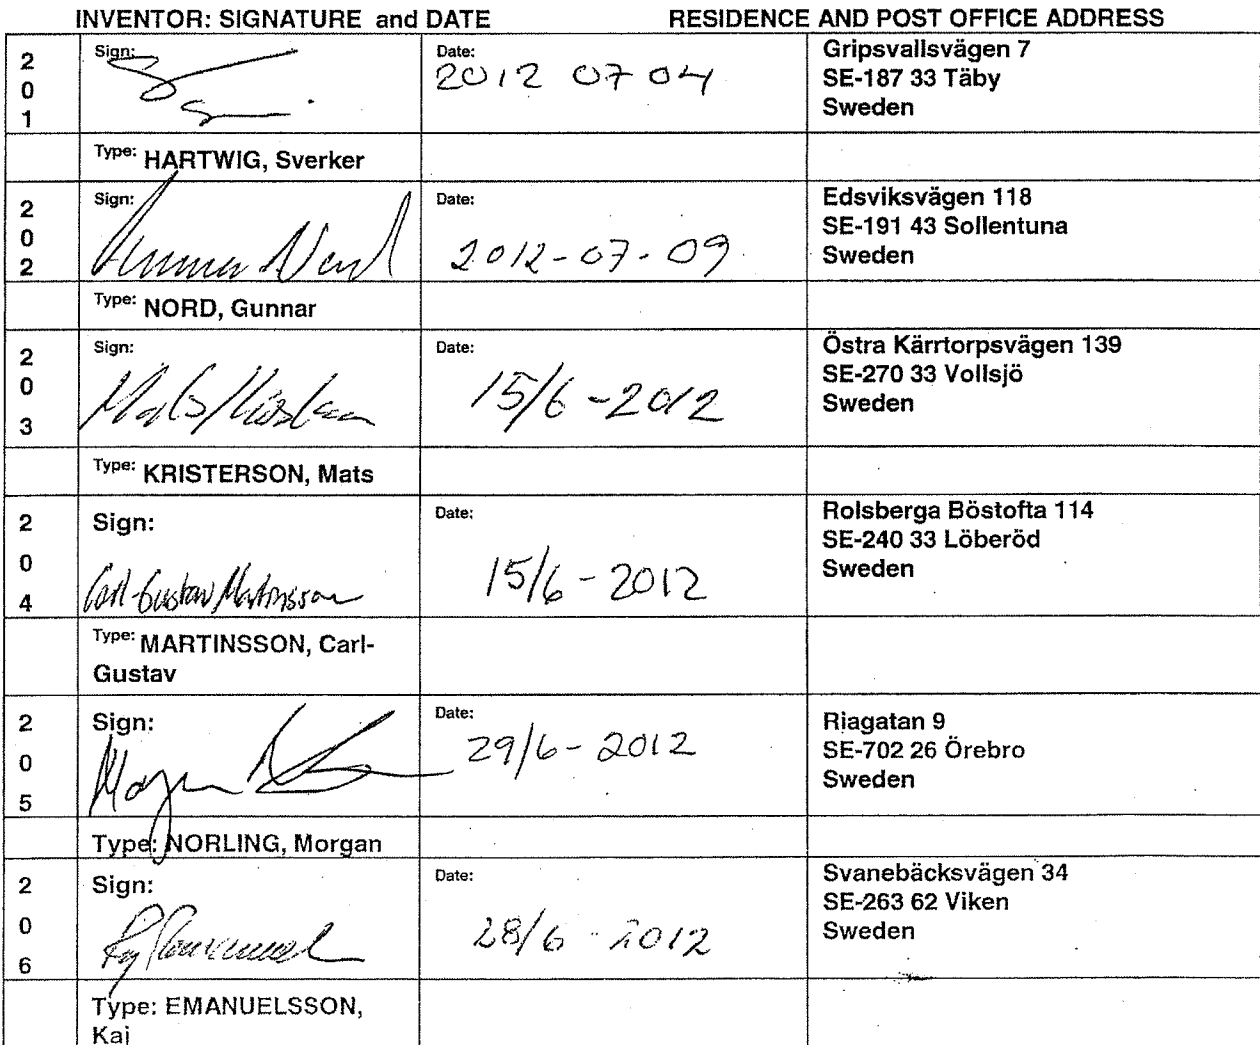 INVENTOR: SIGNATURE and DATE RESIDENCE AND POST OFFICE ADDRESS
201
Sign:
Date:
2012 07 04
Gripsvallsvägen 7
SE-187 33 Täby
Sweden
Type: HARTWIG, Sverker
202
Sign:
Gunnar Nord
Date:
2012-07-09
Edsviksvägen 118
SE-191 43 Sollentuna
Sweden
Type: NORD, Gunnar
203
Sign:
Mats Kristerson
Date:
15/6-2012
Östra Kärrtorpsvägen 139
SE-270 33 Vollsjö
Sweden
Type: KRISTERSON, Mats
204
Sign:
Carl-Gustav Martinsson
Date:
15/6-2012
Rolsberga Böstofta 114
SE-240 33 Löberöd
Sweden
Type: MARTINSSON, Carl-
Gustav
205
Sign:
Morgan
Date:
29/6-2012
Riagatan 9
SE-702 26 Örebro
Sweden
Type: NORLING, Morgan
206
Sign:
Kaj Emanuelsson
Date:
28/6-2012
Svanebäcksvägen 34
SE-263 62 Viken
Sweden
Type: EMANUELSSON,
Kaj